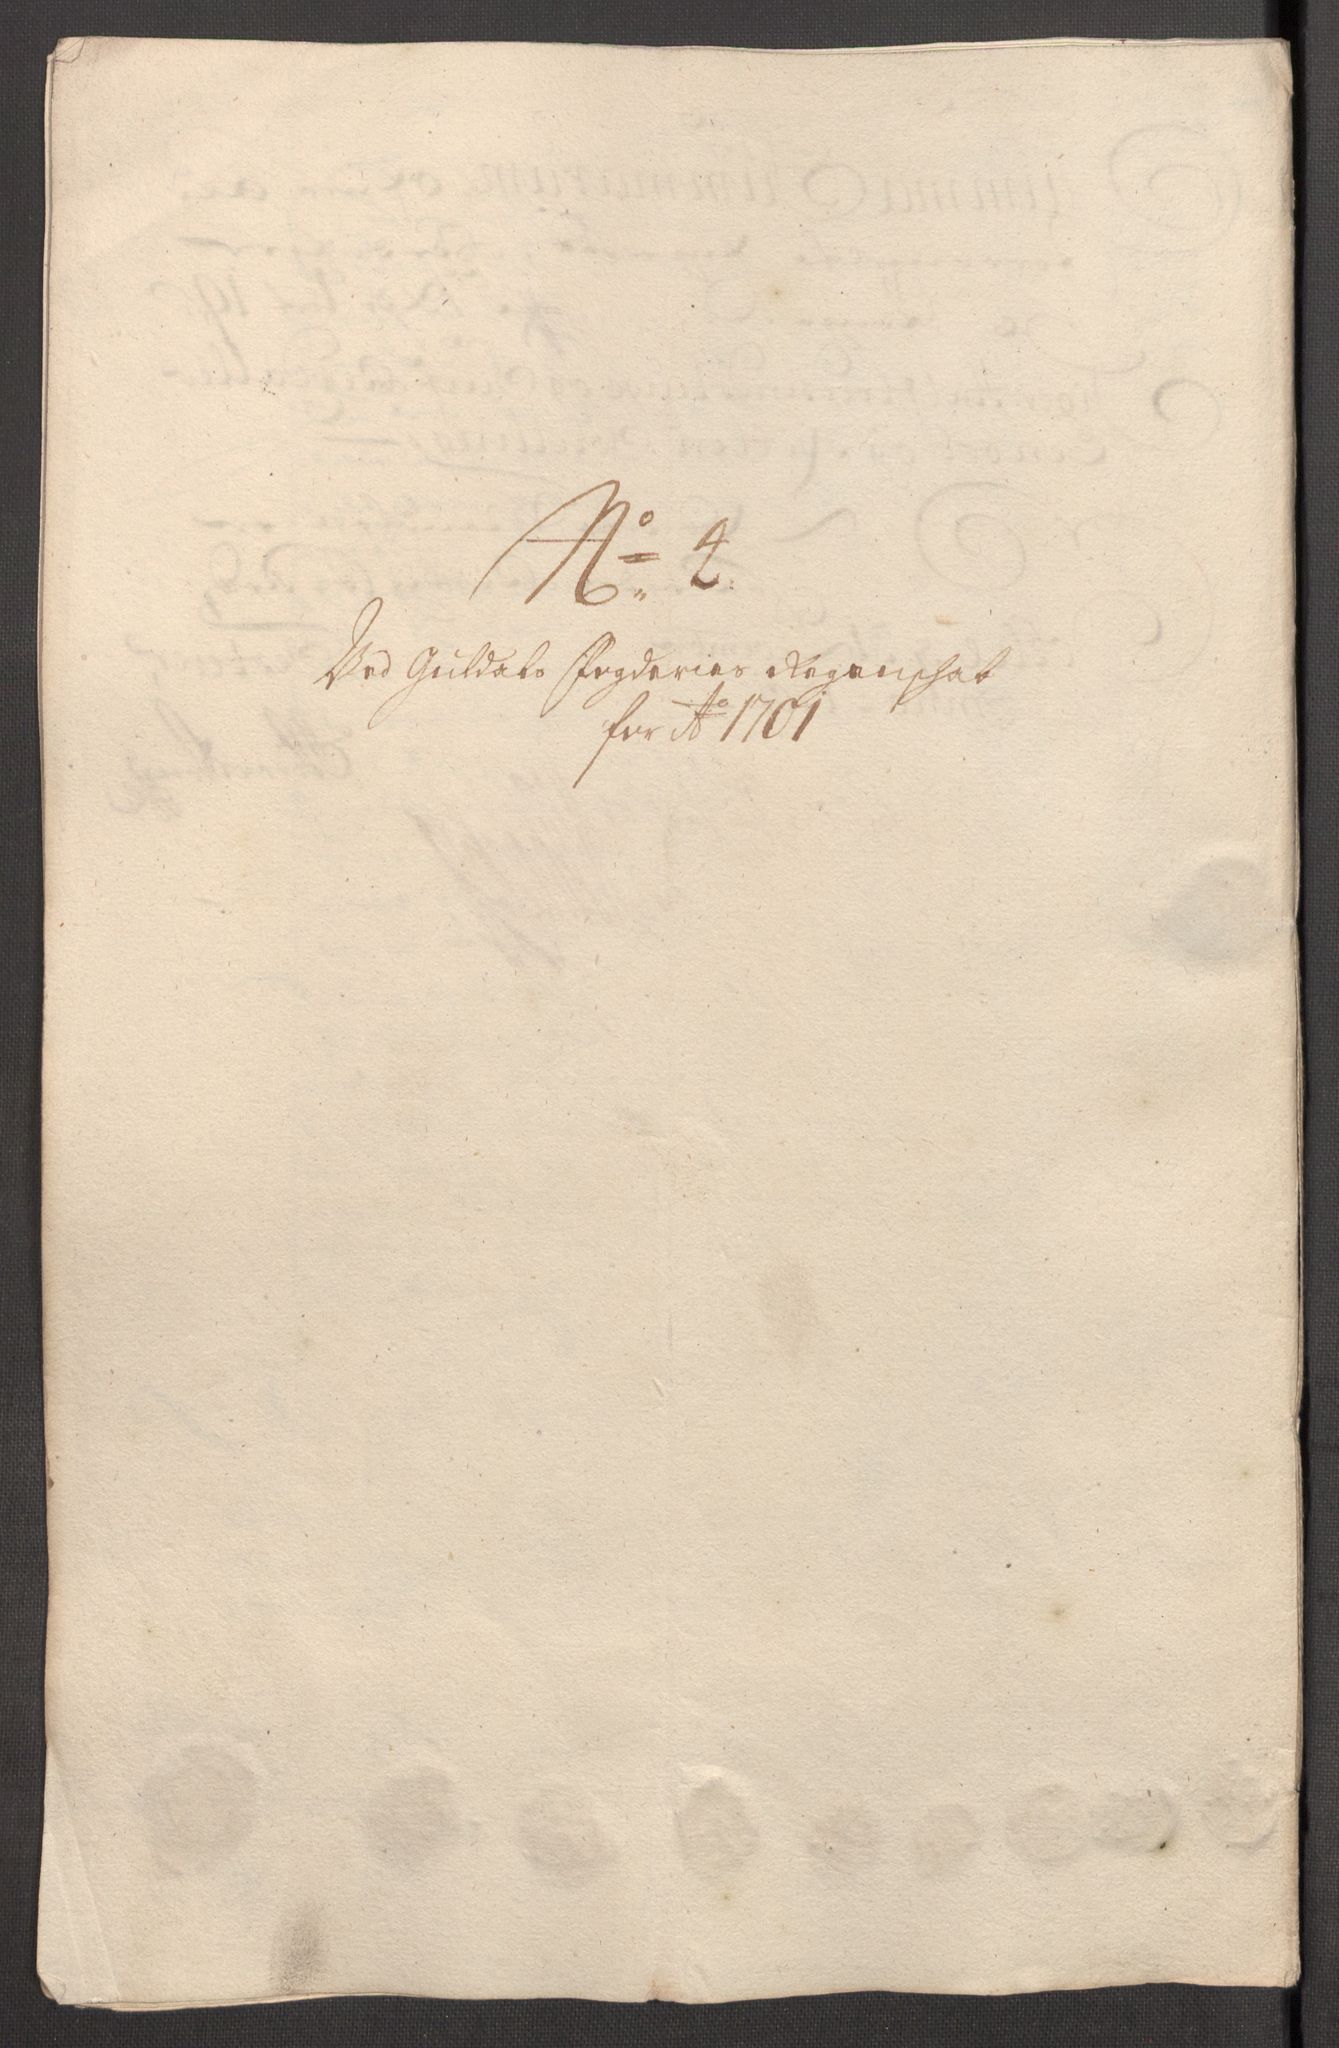 No. 2.
Ved Guldals Fogderies Regenschab
for Ao 1701